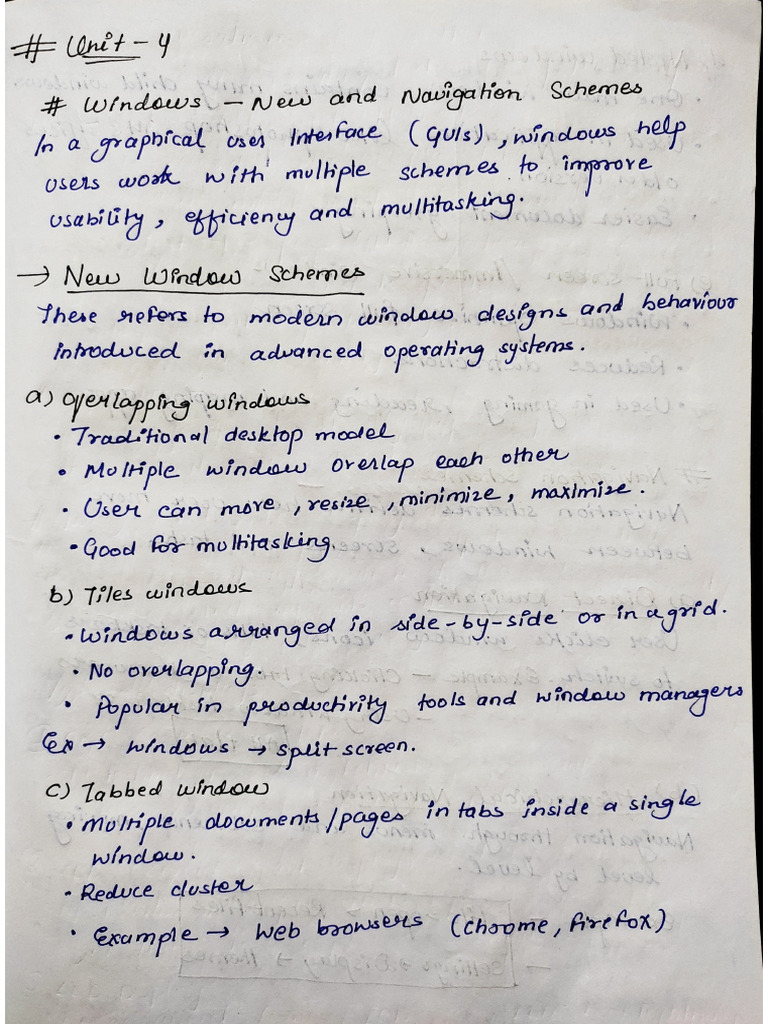 # Unit - 4
# Windows - New and Navigation Schemes
In a graphical user Interface (GUIs), windows help
users work with multiple schemes to improve
usability, efficiency and multitasking.
→ New Window Schemes
These refers to modern window designs and behaviour
introduced in advanced operating systems.
a) Overlapping windows
• Traditional desktop model
• Multiple window overlap each other
• User can move, resize, minimize, maximize.
• Good for multitasking.
b) Tiles windows
• Windows arranged in side-by-side or in a grid.
• No overlapping.
• Popular in productivity tools and window managers
Ex → windows → split screen.
c) Tabbed window
• Multiple documents/pages in tabs inside a single
window.
• Reduce cluster
• Example → Web browsers (Chrome, Firefox)